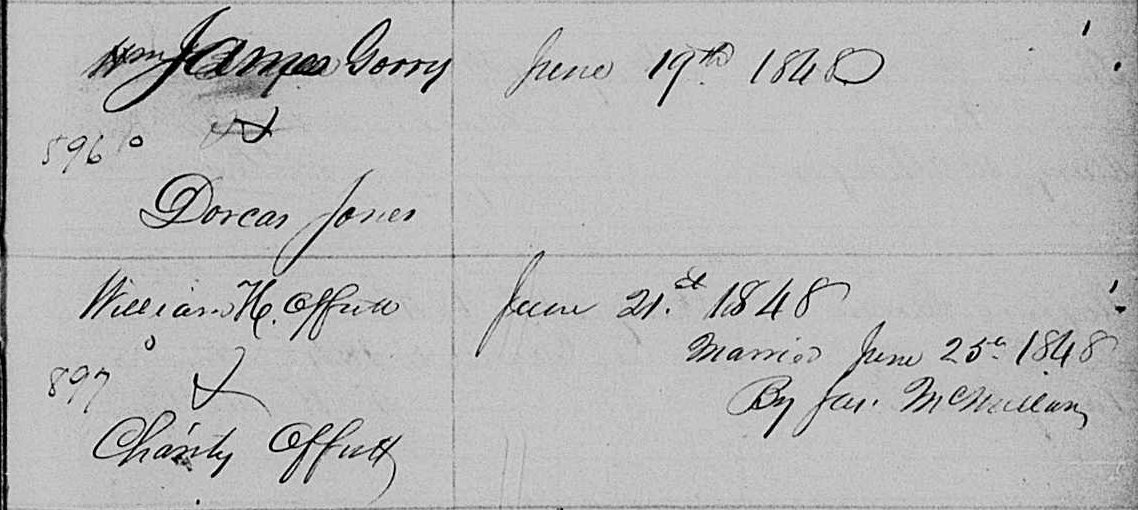 Wm James Gorry June 19th 1848
&
896
Dorcas Jones
William H. Offutt June 21.st 1848
Married June 25th 1848
&
897
By Jas. McMillan
Charity Offutt